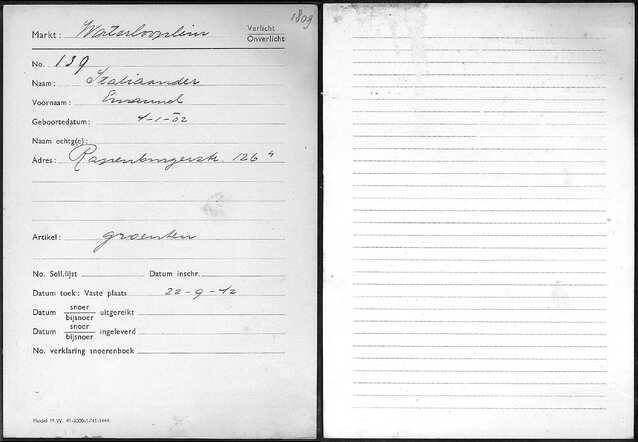 1809
Markt: Waterlooplein Verlicht
Onverlicht
No. 139
Naam: Italiaander
Voornaam: Emanuel
Geboortedatum: 4-1-02
Naam echtg(e):
Adres: Rapenburgerstr. 126
Artikel: groenten
No. Soll.lijst Datum inschr.
Datum toek: Vaste plaats 22-9-42
Datum snoer
bijsnoer uitgereikt
Datum snoer
bijsnoer ingeleverd
No. verklaring snoerenboek
Model M.W.